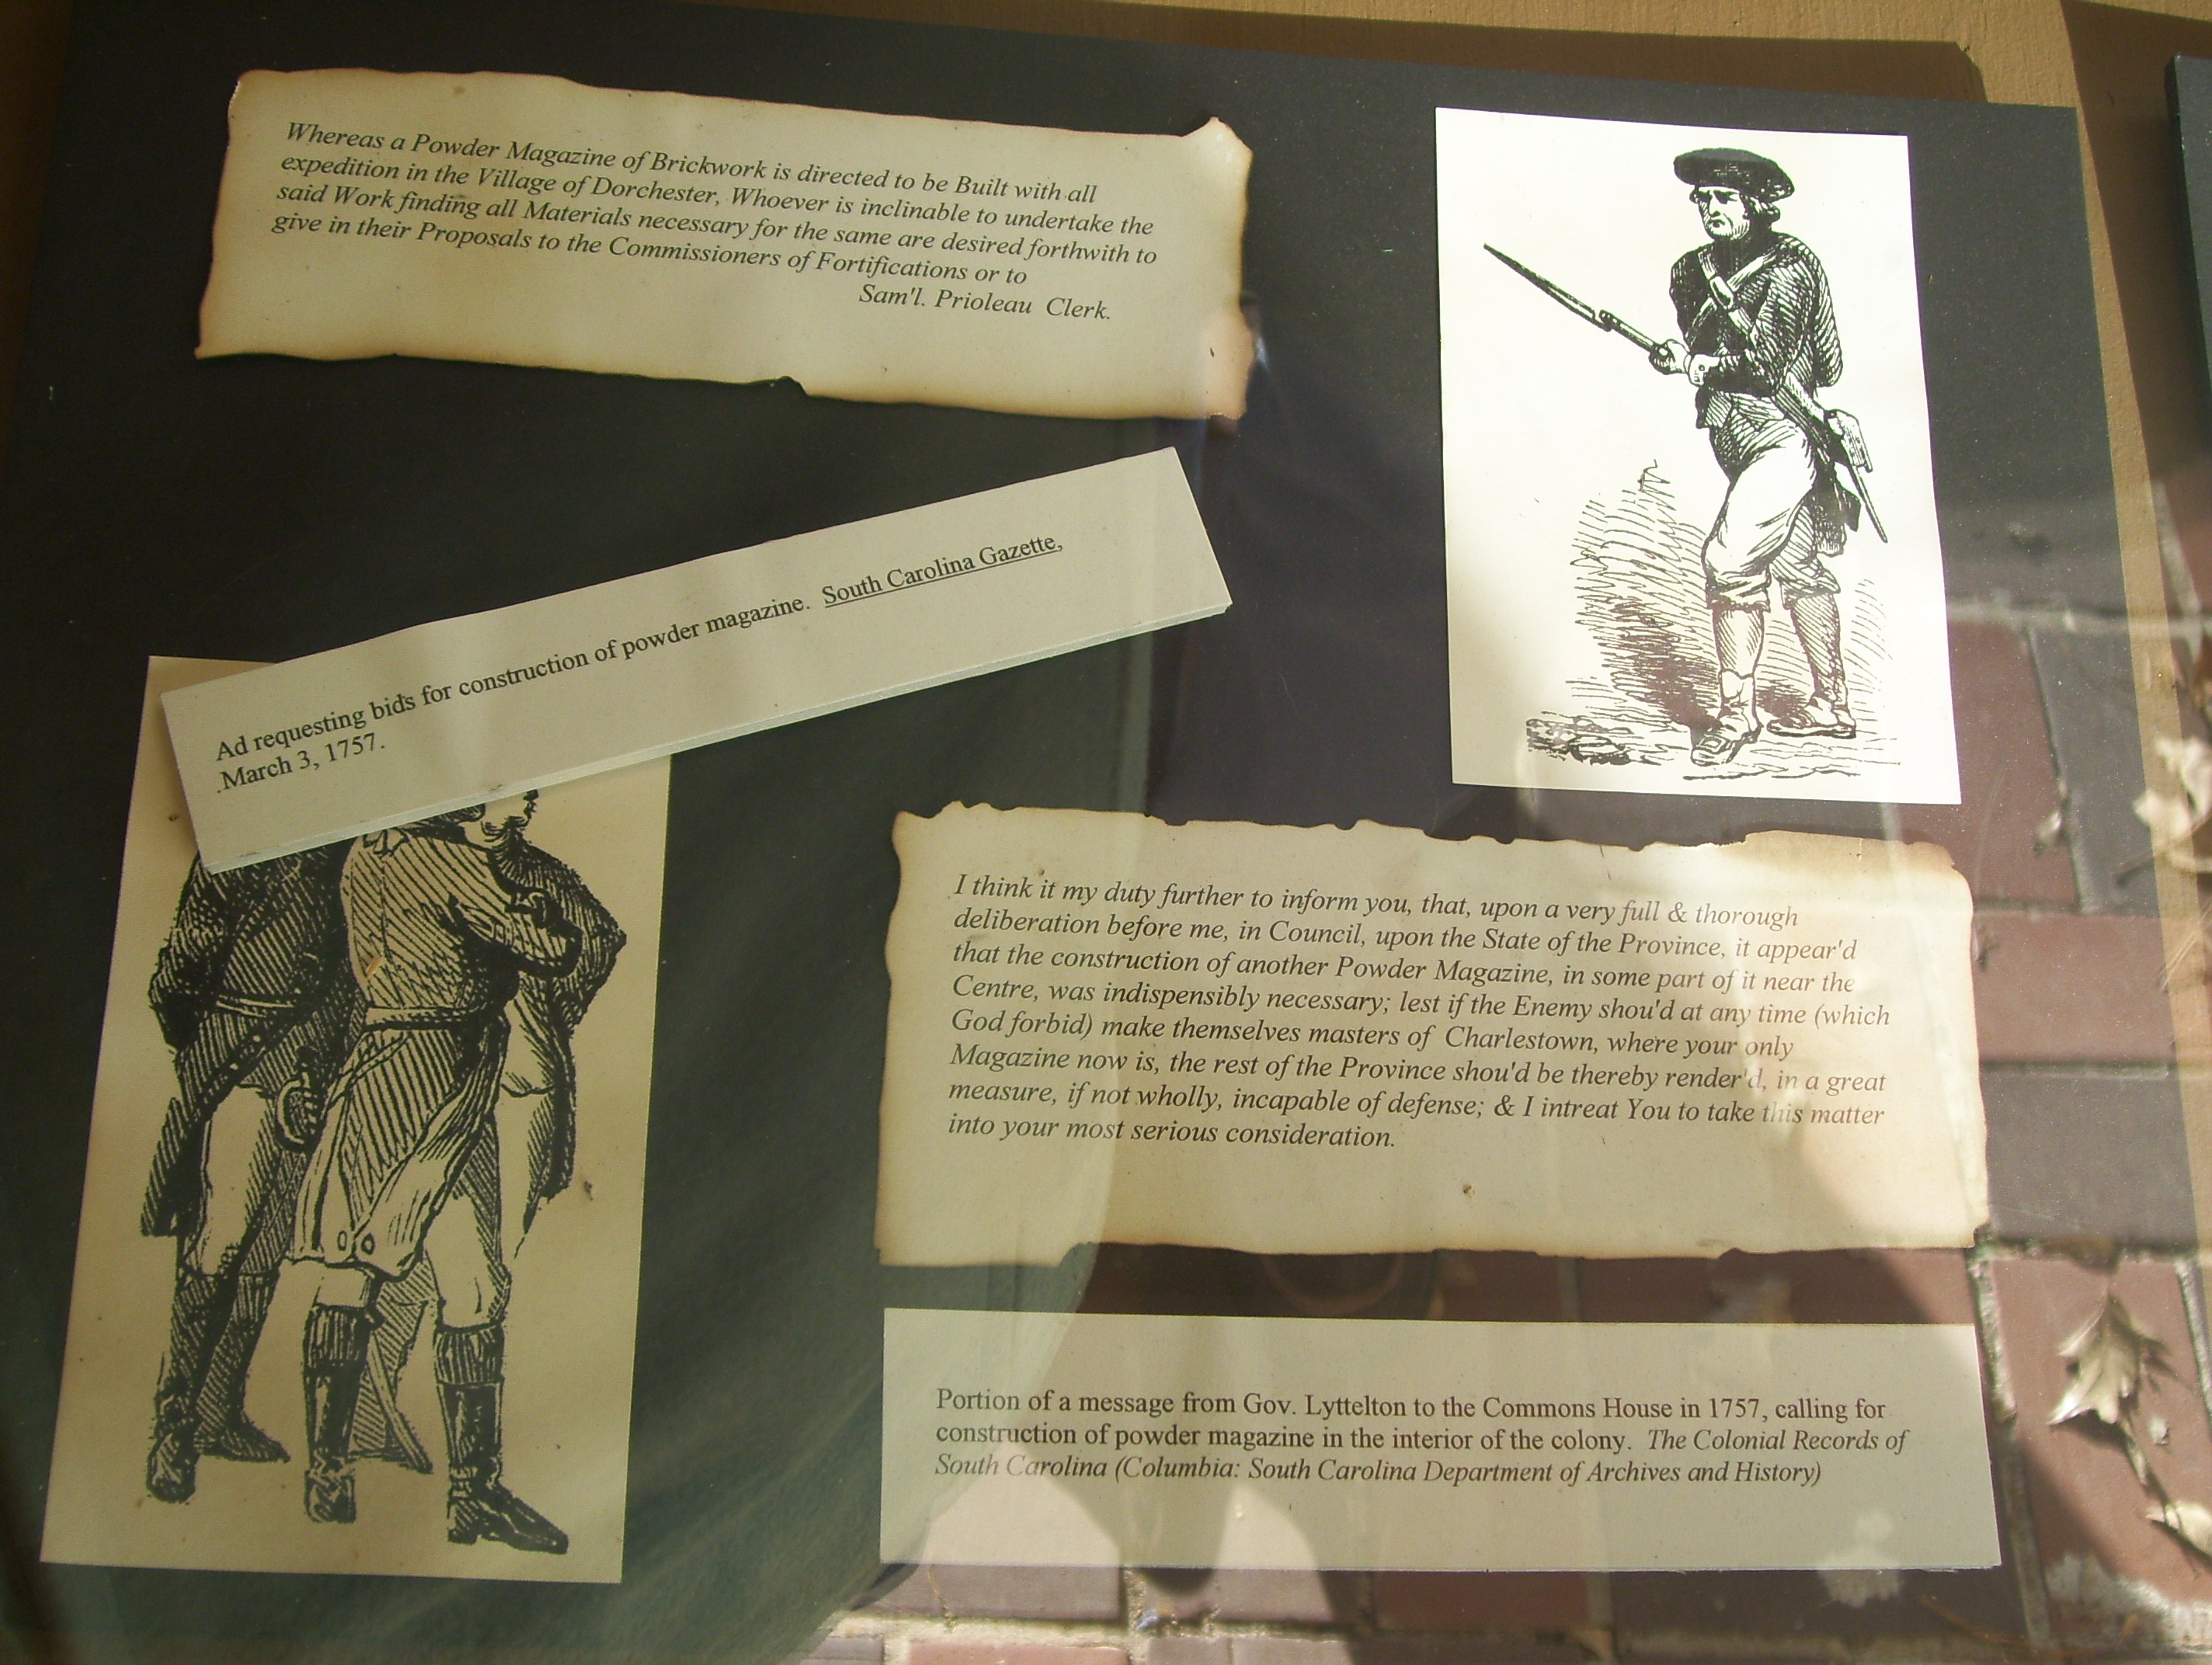 Whereas a Powder Magazine of Brickwork is directed to be Built with all
expedition in the Village of Dorchester, Whoever is inclinable to undertake the
said Work finding all Materials necessary for the same are desired forthwith to
give in their Proposals to the Commissioners of Fortifications or to
Sam'l. Prioleau Clerk.
Ad requesting bids for construction of powder magazine. South Carolina Gazette,
March 3, 1757.
I think it my duty further to inform you, that, upon a very full & thorough
deliberation before me, in Council, upon the State of the Province, it appear'd
that the construction of another Powder Magazine, in some part of it near the
Centre, was indispensibly necessary; lest if the Enemy shou'd at any time (which
God forbid) make themselves masters of Charlestown, where your only
Magazine now is, the rest of the Province shou'd be thereby render'd, in a great
measure, if not wholly, incapable of defense; & I intreat You to take this matter
into your most serious consideration.
Portion of a message from Gov. Lyttelton to the Commons House in 1757, calling for
construction of powder magazine in the interior of the colony. The Colonial Records of
South Carolina (Columbia: South Carolina Department of Archives and History)